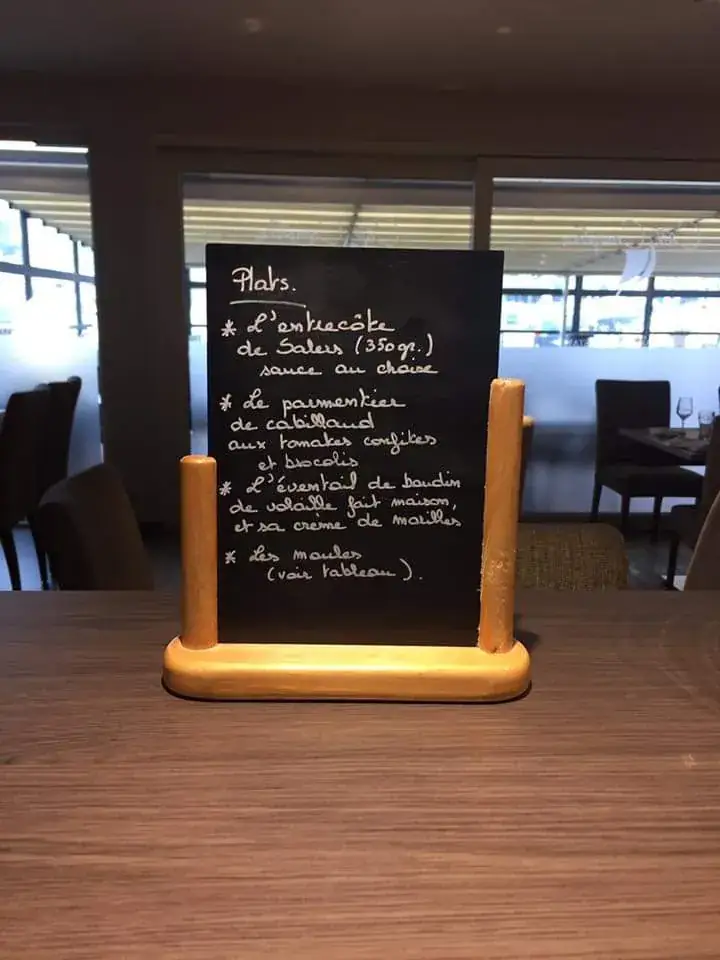 Plats.
* L'entrecôte
de Salers (350gr.)
sauce au choix
* Le parmentier
de cabillaud
aux tomates confites
et brocolis
* L'éventail de boudin
de volaille fait maison,
et sa crème de morilles
* Les moules
(voir tableau).